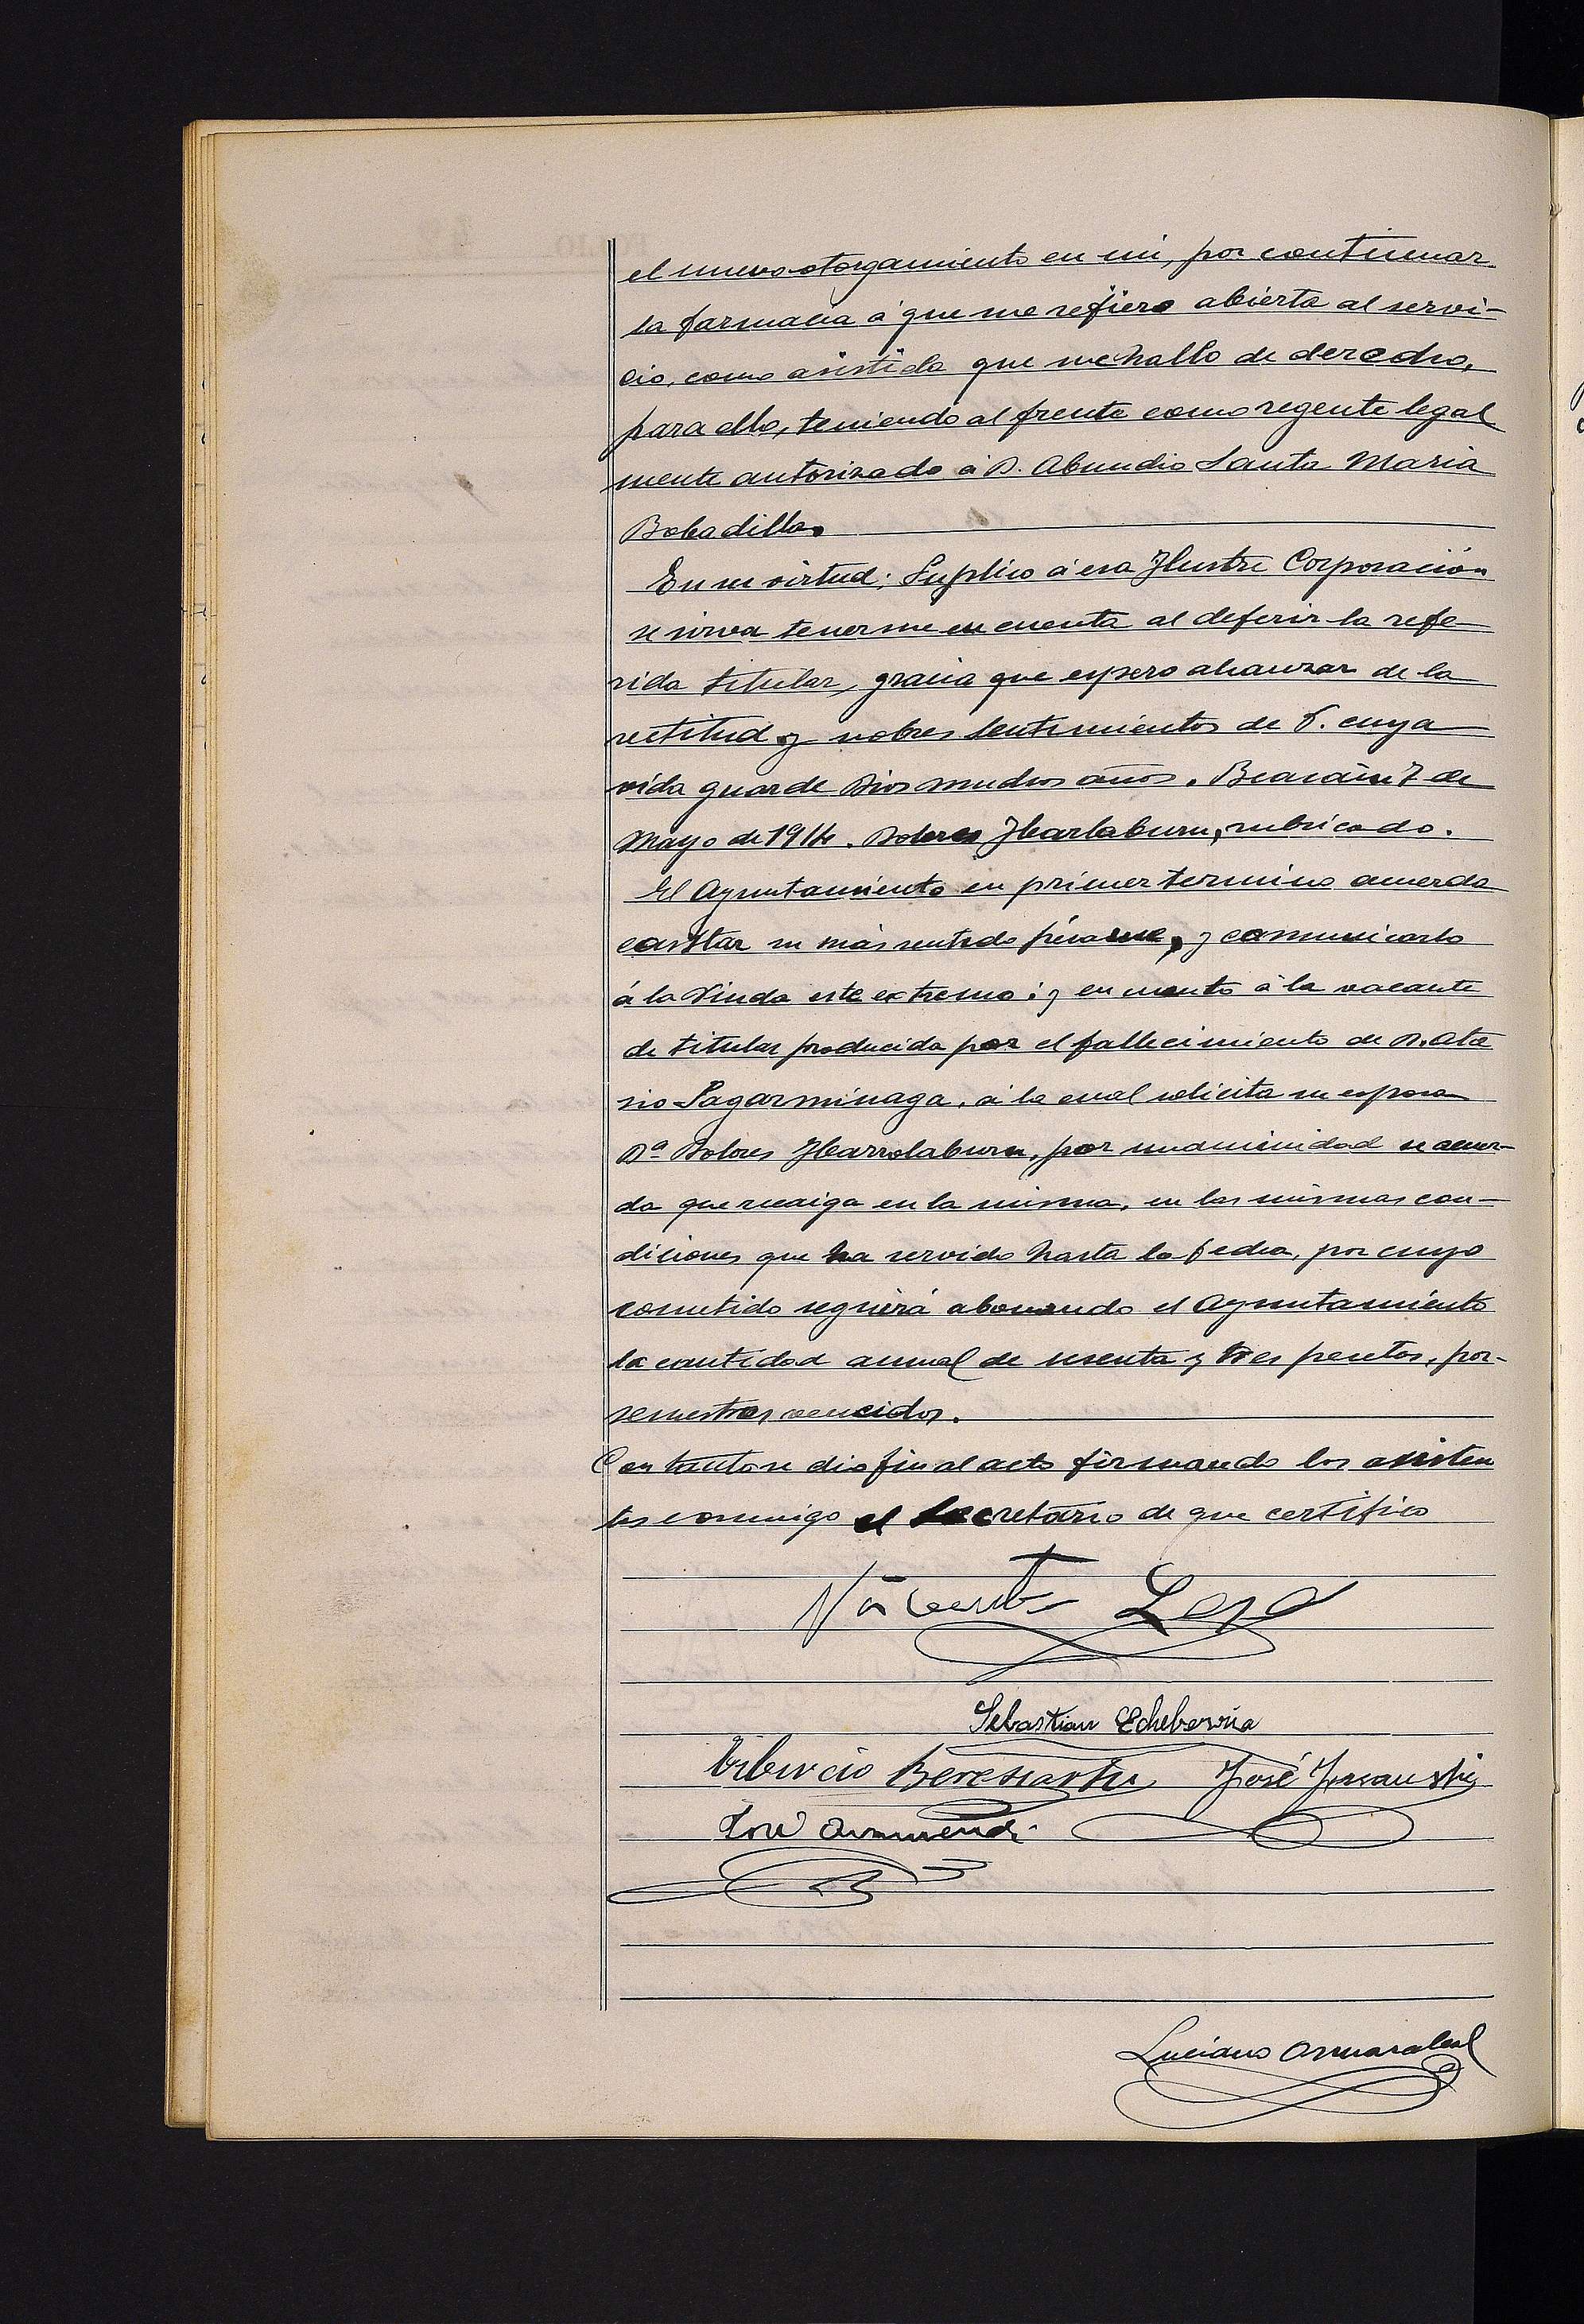 el nuevo otorgamiento en mi, por continuar
la farmacia á que me refiero abierta al servi-
cio, como asistida que me hallo de derecho,
para ello, teniendo al frente como regente legal
mente autorizado á D. Abundio Santa Maria
Bobadilla.
En su virtud; Suplico á esa Ilustre Corporación
se sirva tenerme en cuenta al deferir la refe
rida titular, gracia que espero alcanzar de la
rectitud y nobles sentimientos de V. cuya
vida guarde Dios muchos años. Beasáin 7 de
Mayo de 1914. Dolores Ibarlaburu, rubricado.
El Ayuntamiento en primer termino acuerda
constar su más sentido pésame, y comunicarlo
á la Viuda este extremo: y en cuanto á la vacante
de titular producida por el fallecimiento de D. Ata
sio Sagarminaga, á la cual solicita su esposa
Dª Dolores Ibarrolaburu, por unanimidad se acuer-
da que recaiga en la misma, en las mismas con-
diciones que ha servido hasta la fecha, por cuyo
cometido seguirá abonando el Ayuntamiento
la cantidad anual de sesenta y tres pesetas, por-
semestres vencidos.
Con tanto se dio fin al acto firmando los asisten
tes conmigo el Secretario de que certifico
Vicente Lasa
Sebastian Echeberria
Tiburcio Beresiartu José Insausti
José Armendi
Luciano